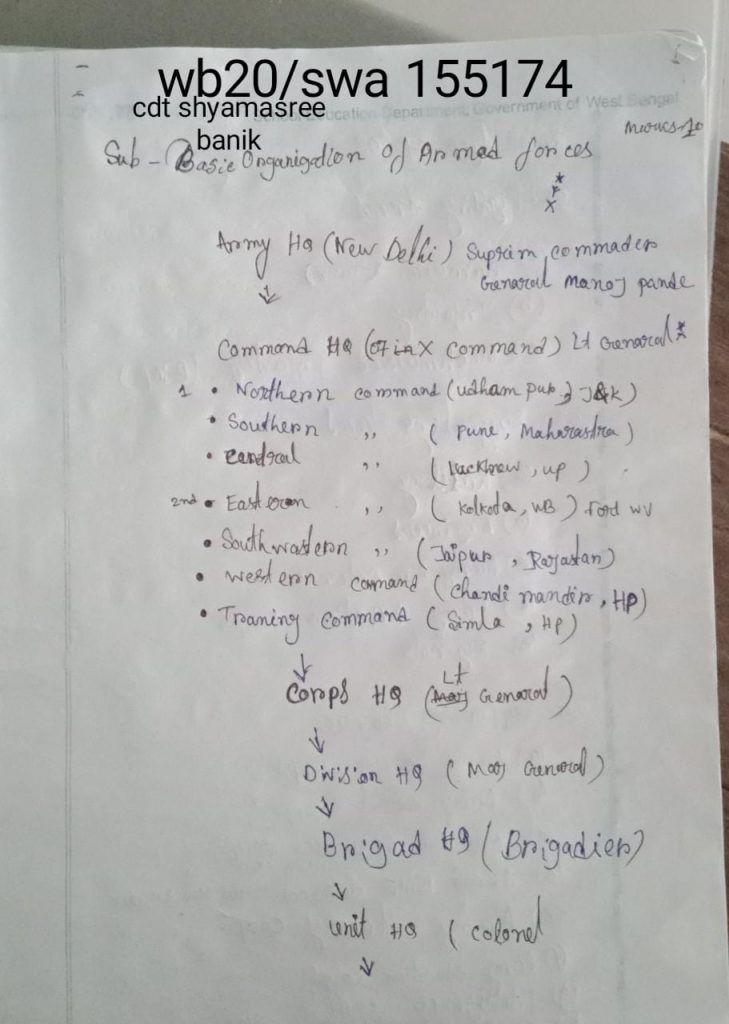 wb20/swa 155174
cdt shyamasree
banik
Education Department, Government of West Bengal
Marks-10
Sub - Basic Organigation Of Armed forces
Army HQ (New Delhi) Suprim commader
Genaral Manoj pande
Command HQ (07 in X command) Lt Genaral
1 • Northern command (udham pur, J&K)
• Southern ,, (pune, Maharastra)
• Cendral ,, (Lucknow, up)
2nd • Eastern ,, (Kolkata, WB) Ford WV
• Southwastern ,, (Jaipur, Rajastan)
• western comand (Chandi mandir, HP)
• Traning Command (Simla, HP)
Corps HQ (Lt Genaral)
Division HQ (Maj Genaral)
Brigad HQ (Brigadier)
unit HQ (colonel